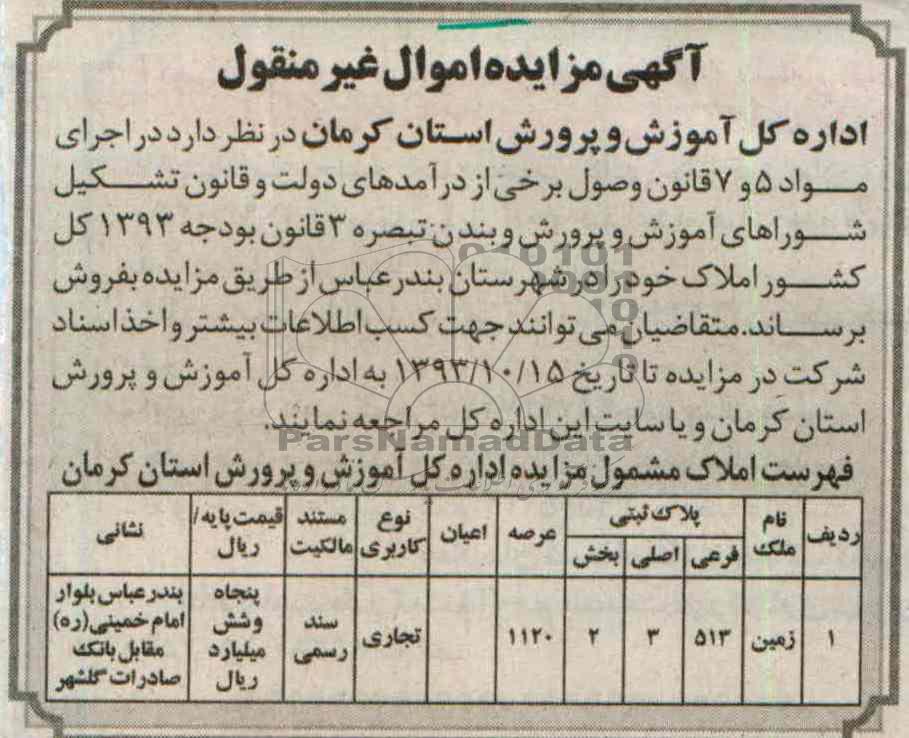 آگهی مزایده اموال غیر منقول
اداره کل آموزش و پرورش استان کرمان در نظر دارد در اجرای
مواد ۵ و ۷ قانون وصول برخی از درآمدهای دولت و قانون تشکیل
شوراهای آموزش و پرورش و بند ن تبصره ۳ قانون بودجه ۱۳۹۳ کل
کشور املاک خود را در شهرستان بندرعباس از طریق مزایده بفروش
برساند. متقاضیان می توانند جهت کسب اطلاعات بیشتر و اخذ اسناد
شرکت در مزایده تا تاریخ ۱۳۹۳/۱۰/۱۵ به اداره کل آموزش و پرورش
استان کرمان و یا سایت این اداره کل مراجعه نمایند.
ParsNamadData
فهرست املاک مشمول مزایده اداره کل آموزش و پرورش استان کرمان
ردیف نام ملک پلاک ثبتی عرصه اعیان نوع کاربری مستند مالکیت قیمت پایه/ ریال نشانی
فرعی اصلی بخش
۱ زمین ۵۱۳ ۳ ۲ ۱۱۲۰ تجاری سند رسمی پنجاه وشش میلیارد ریال بندرعباس بلوار امام خمینی(ره) مقابل بانک صادرات گلشهر